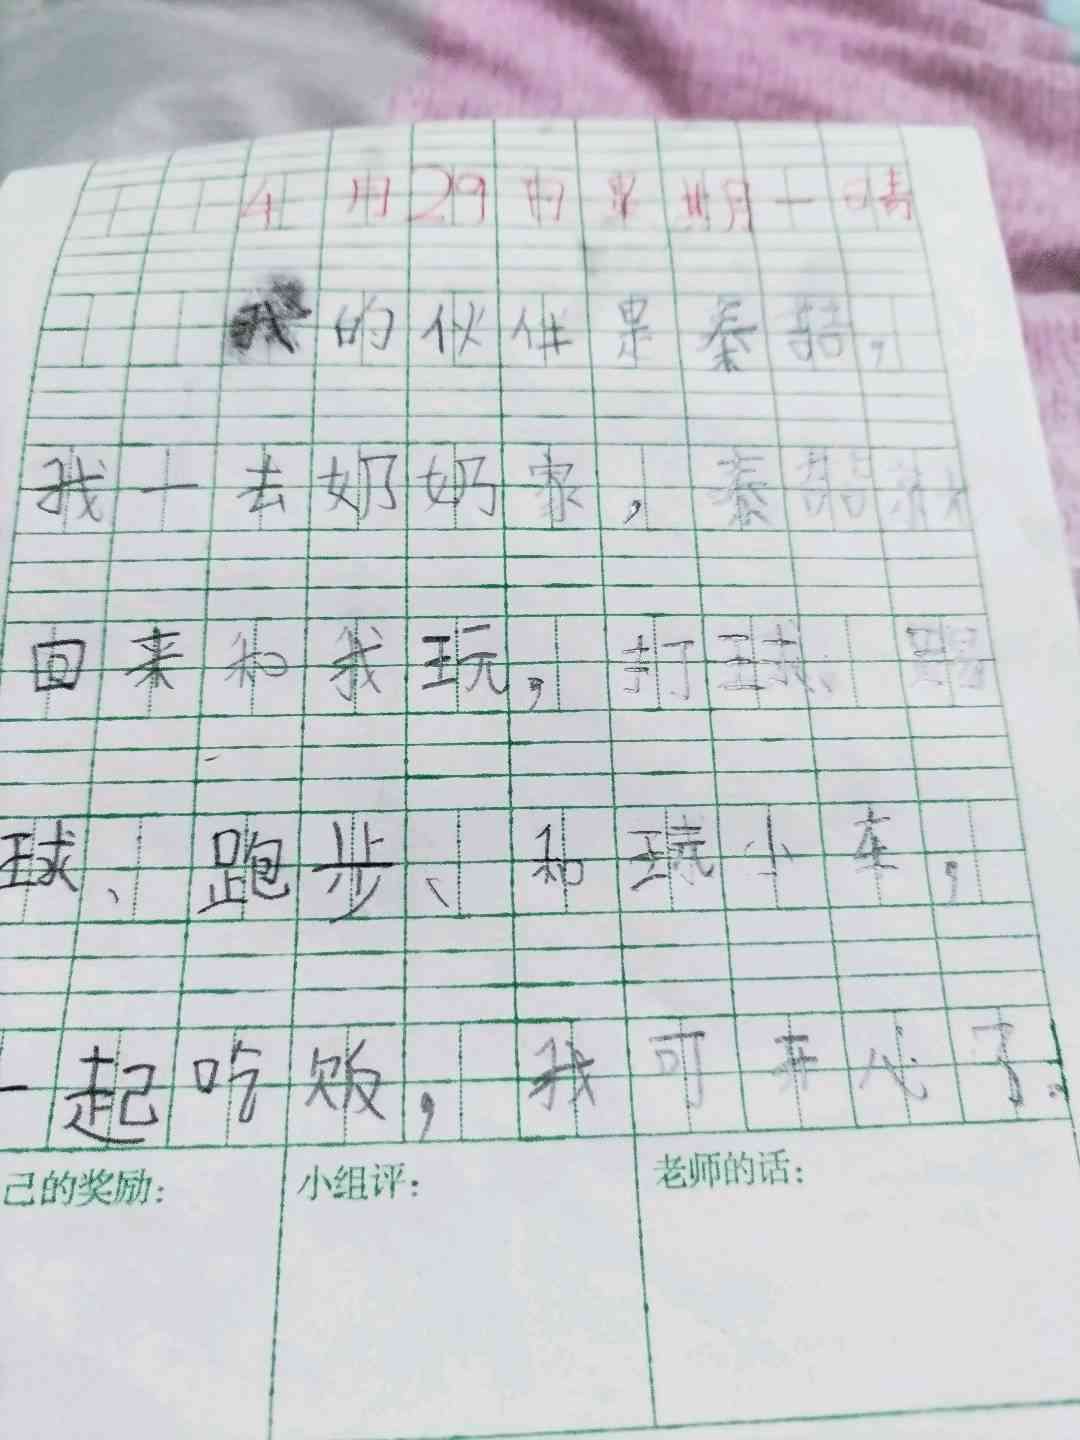 4月29日星期一晴
我的伙伴是秦喆,
我一去奶奶家,秦喆就
回来和我玩,打球、踢
球、跑步、和玩小车,
一起吃饭,我可开心了.
己的奖励:
小组评:
老师的话: